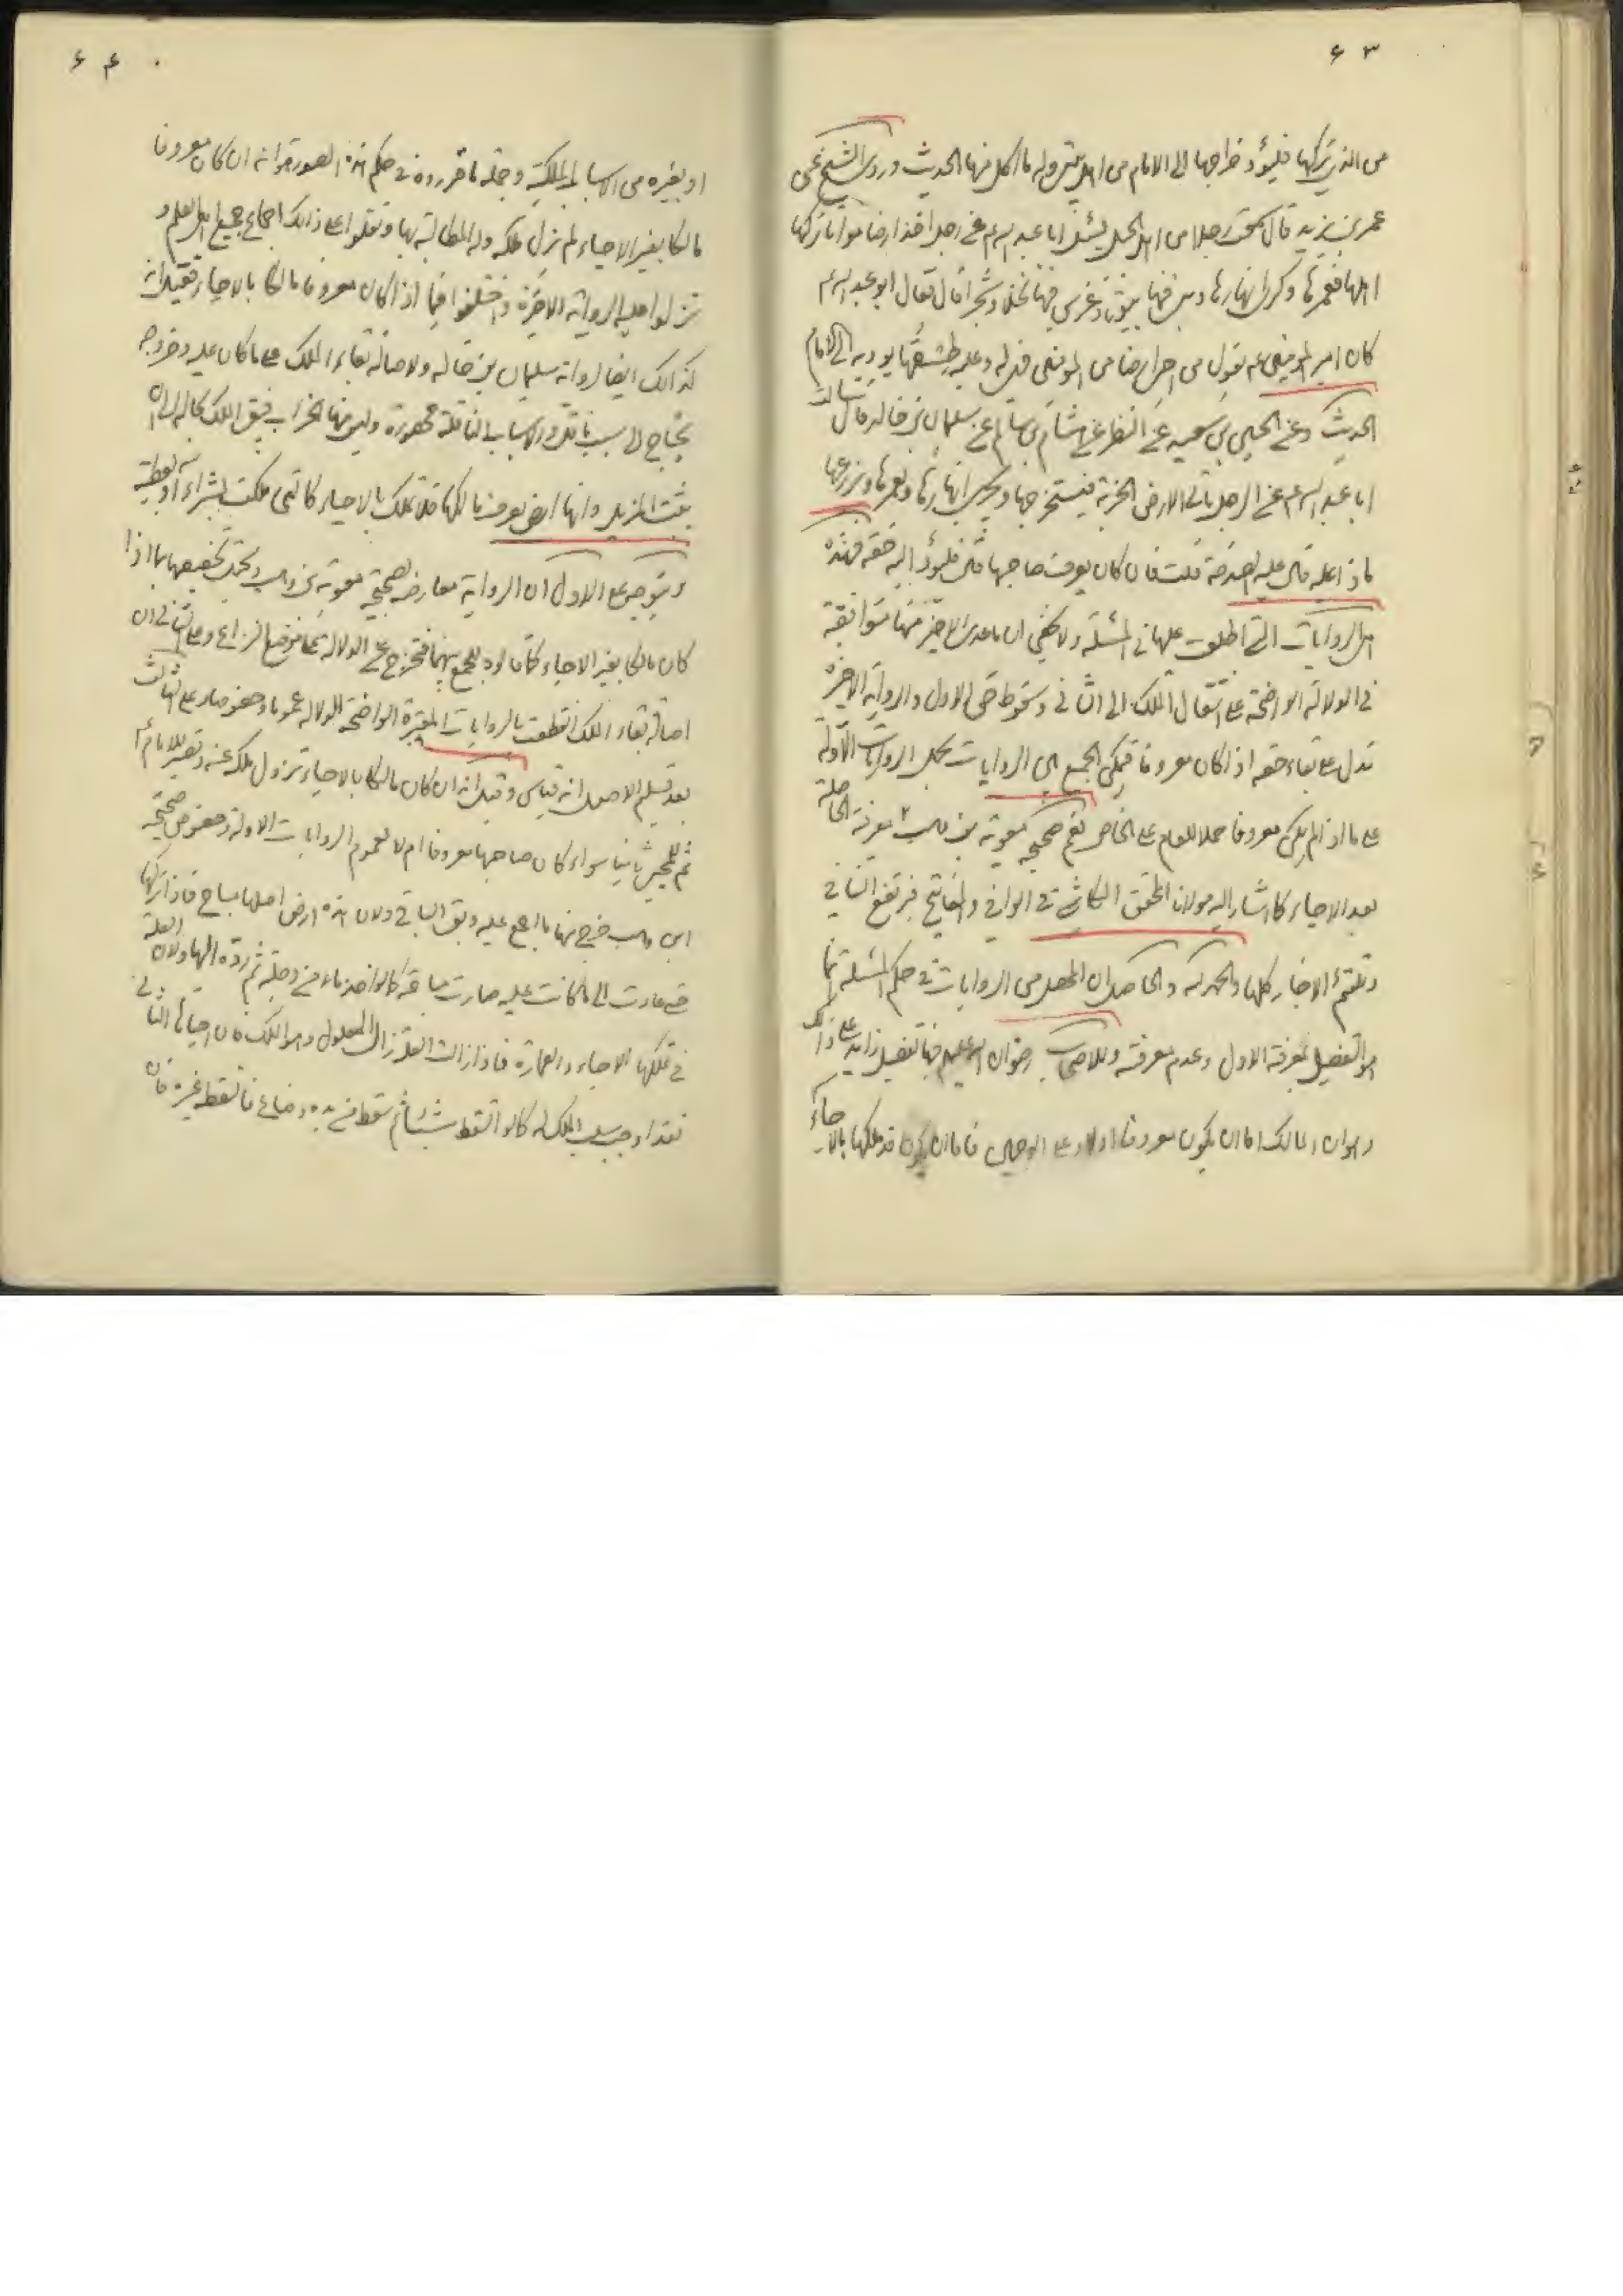 ٦٣
من الذي تركها فليؤد خراجها الى الامام من اهل بيتي وله ما اكل منها الحديث وروى الشيخ عن
عمر بن يزيد قال سمعت رجلا من اهل الجبل يسئل ابا عبد الله عم عن رجل اخذ ارضا مواتا تركها
اهلها فعمرها وكرى انهارها وبنى فيها بيوتا وغرس فيها نخلا وشجرا قال فقال ابو عبد الله عم
كان امير المؤمنين عم يقول من احيى ارضا من المؤمنين فهي له وعليه طسقها يؤديه الى الامام
الحديث وعن الحسين بن سعيد عن النضر عن هشام بن سالم عن سليمان بن خالد قال سالت
ابا عبد الله عم عن الرجل ياتي الارض الخربة فيستخرجها ويجري انهارها ويعمرها ويزرعها
ماذا عليه قال عليه الصدقة قلت فان كان يعرف صاحبها قال فليؤد اليه حقه فهذه
هي الروايات التي اطلعت عليها في المسئلة ولا يخفى ان ما عدى الاخير منها متوافقة
في الدلالة الواضحة على انتقال الملك الى الثاني وسقوط حق الاول والرواية الاخيرة
تدل على بقاء حقه اذا كان معروفا فيمكن الجمع بين الروايات بحمل الروايات الاولة
على ما اذا لم يكن معروفا حملا للعام على الخاص نعم صحيحة معوية بن وهب معرفة الحاصلة
بعد الاحياء كما اشار اليه مولانا المحقق الكاشي في الوافي والمفاتيح فيرتفع التنافي
وتلتئم الاخبار كلها والحمد لله والحاصل ان المحصل من الروايات في حكم المسئلة انما
هو التفصيل بمعرفة الاول وعدم معرفته وللاصحاب رضوان الله عليهم فيها تفصيل زايد على ذالك
وهو ان المالك اما ان يكون معروفا اولا وعلى الوجهين فاما ان يكون قد ملكها بالاحياء
٦٤
او بغيره من الاسباب المملكة وجملة ما قرروه في حكم هذه الصورة هو انه ان كان معروفا
مالكا بغير الاحياء لم نزل ملكه وله المطالبة بها ونقلوا على ذالك اجماع جميع اهل العلم و
نزلوا عليه الرواية الاخيرة واختلفوا فيما اذا كان معروفا مالكا بالاحياء فقيل انه
كذالك ايضا لرواية سليمان بن خالد ولاصالة بقاء الملك على ما كان عليه وخروجه
يحتاج الى سبب ناقل والاسباب الناقلة محصورة وليس منها الخراب فيبقى الملك بحاله الى ان
يثبت المزيل وانها ارض يعرف مالكها فلا تملك بالاحياء كالتي ملكت بشراء او عطية
ويتوجه على الاول ان الرواية معارضة بصحيحة معوية بن وهب ويحتمل تخصيصها بما اذا
كان مالكا بغير الاحياء للجمع بينهما فتخرج عن الدلالة عما موضع النزاع وعلى الثاني ان
اصالة بقاء الملك انقطعت بالروايات المعتبرة الواضحة الدلالة عموما وخصوصا وعلى الثالث
بعد تسليم الاصل انه قياس وقيل انه ان كان مالكا بالاحياء تزول ملكه عنه وتصير للامام
ثم للمحيي ثانيا سواء كان صاحبها معروفا ام لا لعموم الروايات الاولة وخصوص صحيحة
ابن وهب خرج منها ما اجمع عليه وبقى الباقي ولان هذه ارض اصلها مباح فاذا تركها
حتى عادت الى ما كانت عليه صارت مباحة كما لو اخذ ماء من دجلة ثم رده اليها ولان العلة
في تملكها الاحياء والعمارة فاذا زالت العلة زال المعلول وهو الملك فان احياها الثاني
فقد اوجب سبب الملك له كما لو التقط شيئا ثم سقط من يده وضاع فالتقطه غيره فان